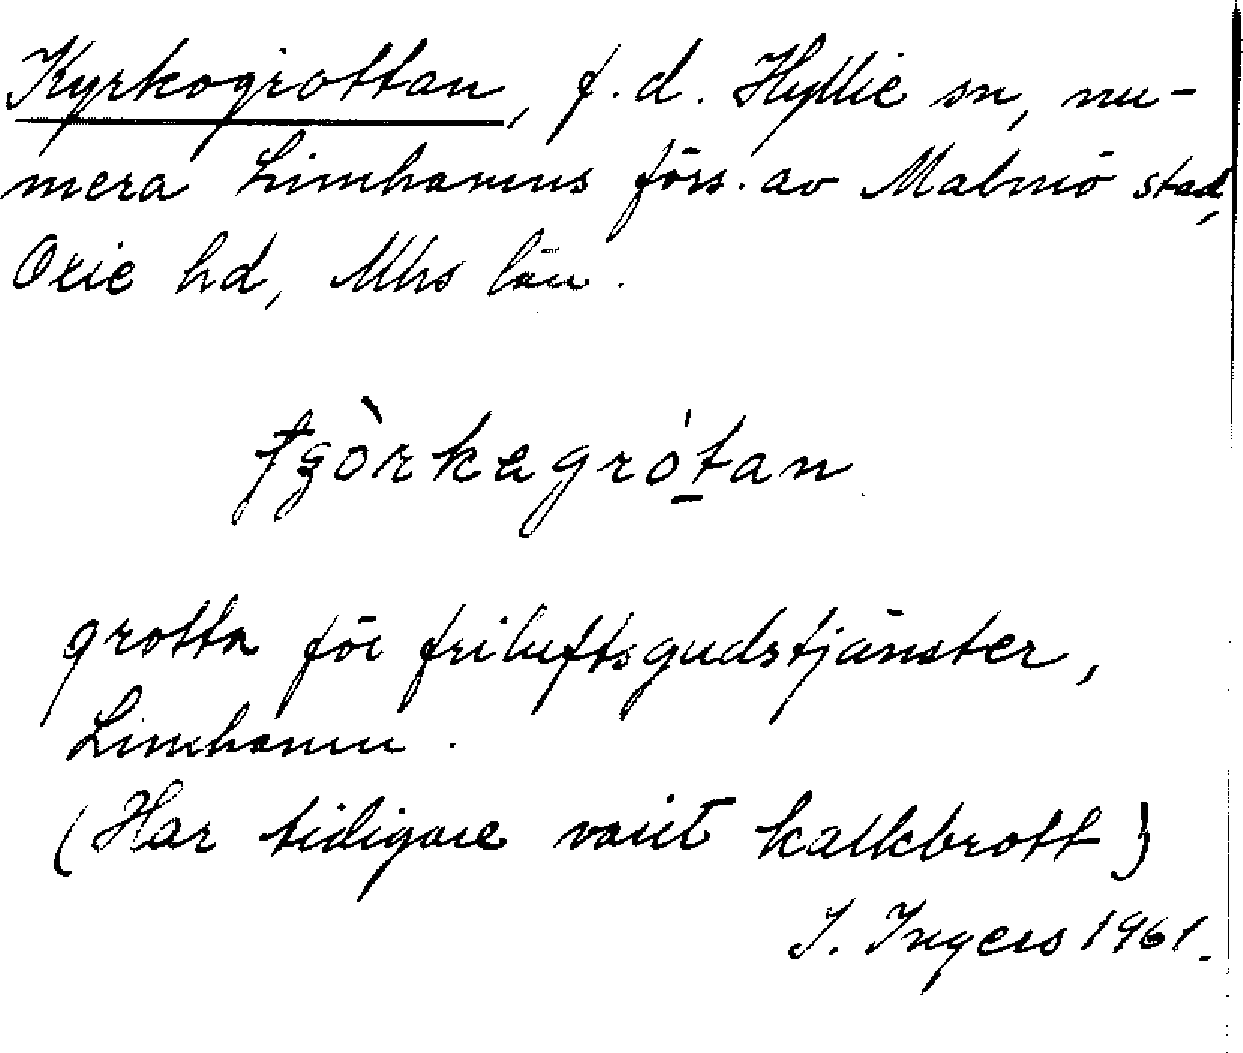 Kyrkogrottan, f.d. Hyllie sn, nu-
mera Limhamns förs. av Malmö stad,
Oxie hd, Mhs län.
tʒòrkagrótan
grotta för friluftsgudstjänster,
Limhamn.
(Har tidigare varit kalkbrott)
I. Ingers 1961.